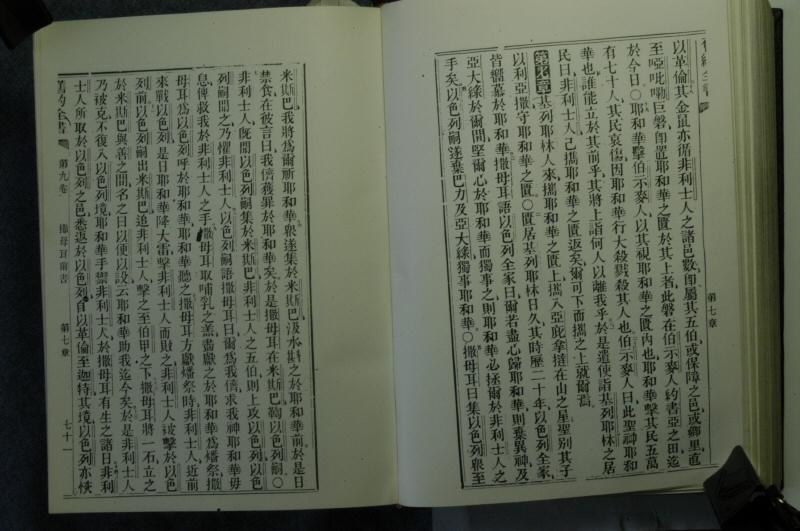 舊約全書
以革倫其金鼠亦循非利士人之諸邑數卽屬其五伯或保障之邑或鄉里直
至亞呲嘞巨磐卽置耶和華之匱於其上者此磐在伯示麥人約書亞之田迄
於今日〇耶和華擊伯示麥人以其視耶和華之匱內也耶和華擊其民五萬
有七十人其民哀傷因耶和華行大殺戮殺其人也伯示麥人曰此聖神耶和
華也誰能立於其前乎其將上詣何人以離我乎於是遣使詣基列耶林之居
民曰非利士人已攜耶和華之匱返矣爾可下而攜之上就爾焉
第七章基列耶林人來攜耶和華之匱上攜入亞庇拿撻在山之屋聖別其子
以利亞撒守耶和華之匱〇匱居基列耶林日久其時歷二十年以色列全家
皆嚮慕於耶和華撒母耳語以色列全家曰爾若盡心歸耶和華則棄異神及
亞大綠於爾間堅爾心於耶和華而獨事之則耶和華必拯爾於非利士人之
手矣以色列嗣遂棄巴力及亞大綠獨事耶和華〇撒母耳曰集以色列衆至
第七章
米斯巴我將爲爾祈耶和華衆遂集於米斯巴汲水斟之於耶和華前於是日
禁食在彼言曰我儕獲罪於耶和華矣於是撒母耳在米斯巴鞫以色列嗣〇
非利士人旣聞以色列嗣集於米斯巴非利士人之五伯則上攻以色列以色
列嗣聞之乃懼非利士人以色列嗣語撒母耳曰爾爲我儕求我神耶和華毋
息俾救我於非利士人之手撒母耳取哺乳之羔盡獻之於耶和華爲燔祭撒
母耳爲以色列呼於耶和華耶和華聽之撒母耳方獻燔祭時非利士人近前
來戰以色列是日耶和華降大雷擊非利士人而敗之非利士人被擊於以色
列前以色列嗣出米斯巴追非利士人擊之至伯甲之下撒母耳將一石立之
於米斯巴與善之間名之曰以便以設云耶和華助我迄今矣於是非利士人
乃被克不復入以色列境耶和華手禦非利士人於撒母耳有生之諸日非利
士人所取於以色列之邑悉返於以色列自以革倫至迦特其境以色列亦俠
舊約全書 第九卷 撒母耳前書 第七章 七十一